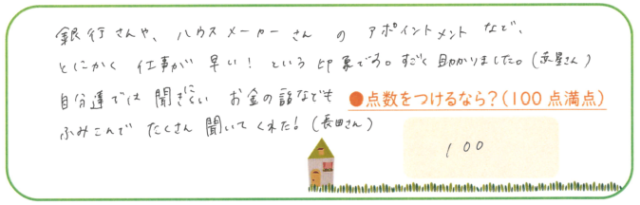 銀行さんや、ハウスメーカーさん の アポイントメント など、
とにかく 仕事が 早い！ という 印象です。すごく 助かりました。(赤星さん)
自分達では 聞きにくい お金の話なども
ふみこんで たくさん 聞いて くれた！(長田さん)
●点数をつけるなら？(100点満点)
100